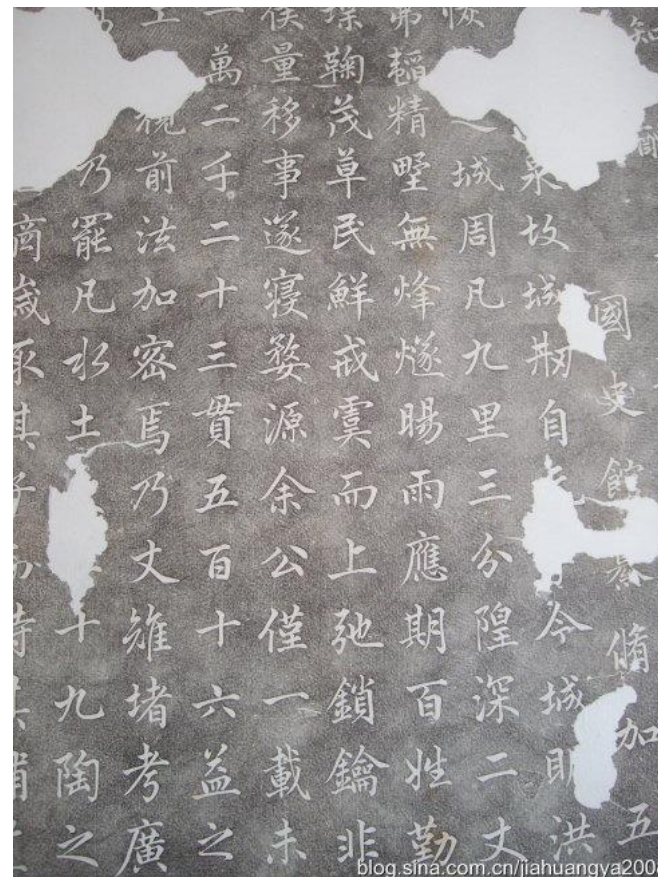 知國史館脩加五
泉故城刱自今城即洪
城周凡九里三分隍深二丈
弗韜精墅無烽燧暘雨應期百姓勤
堞鞠茂草民鮮戒虞而上弛鎖鑰非
侯量移事遂寢婺源余公僅一載未
一萬二千二十三貫五百十六益之
視前法加密焉乃丈雉堵考廣
乃罷凡水土十九陶之
歲取其
blog.sina.com.cn/jiahuangya200